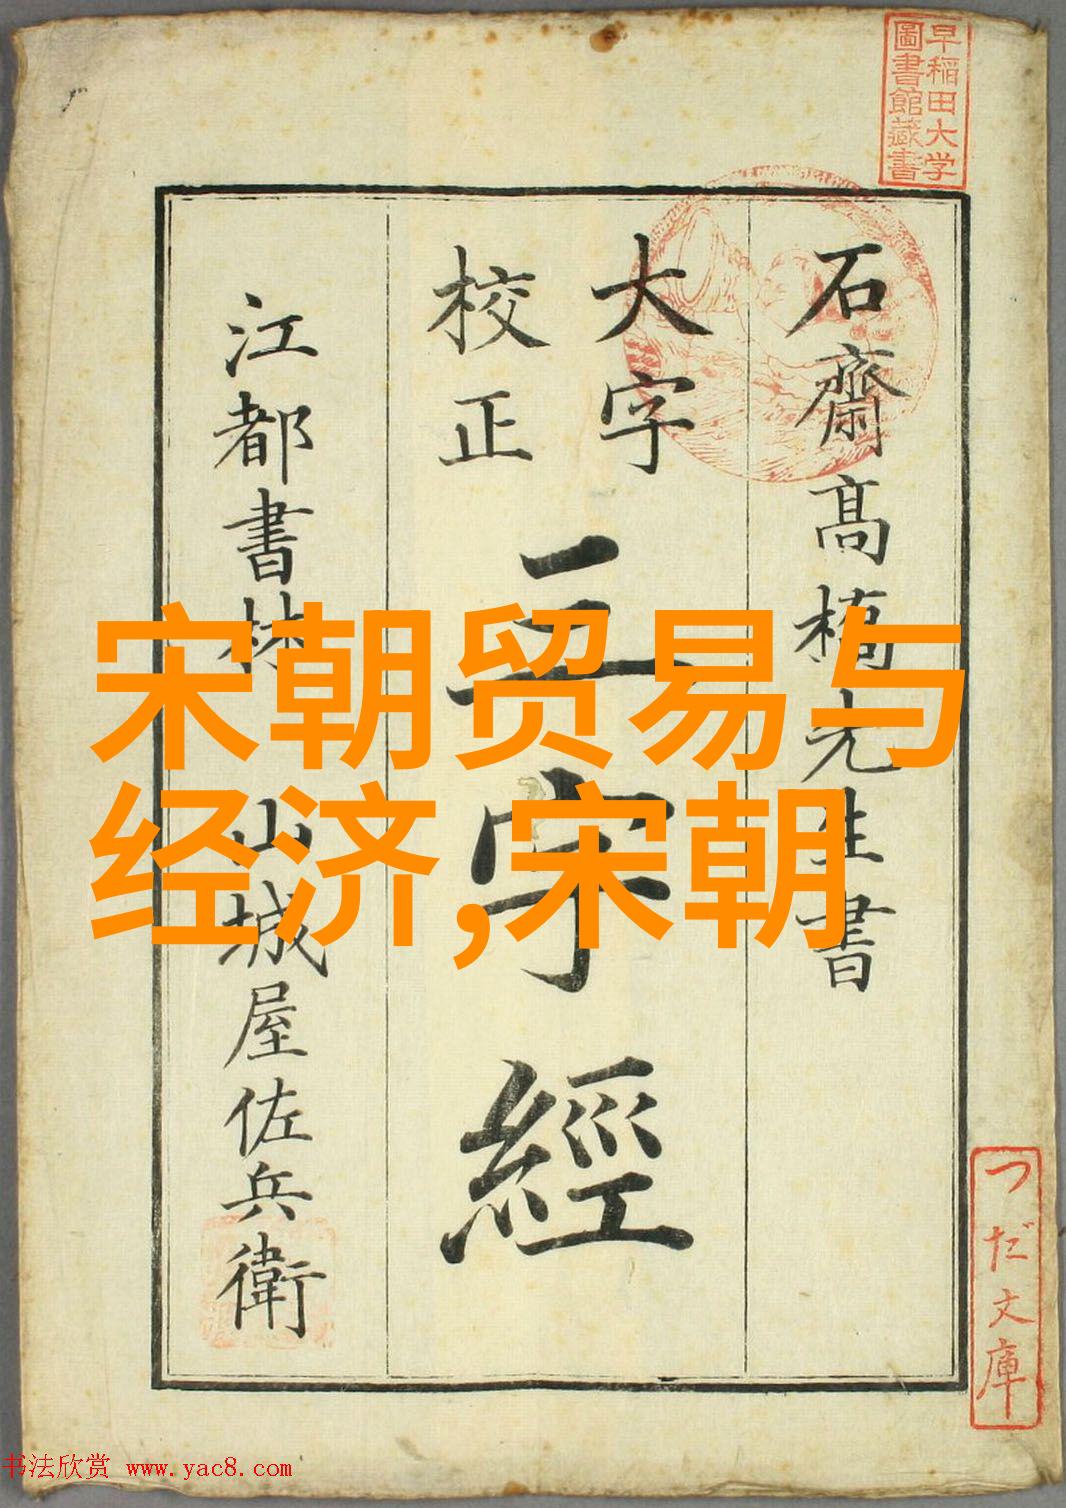 早稲田大学
圖書館藏書
石齋髙橋先生書
大字
校正
三字經
江都書林 山城屋佐兵衛
宋朝贸易与
经济,宋朝
つだ文庫
书法欣赏 www.yac8.com